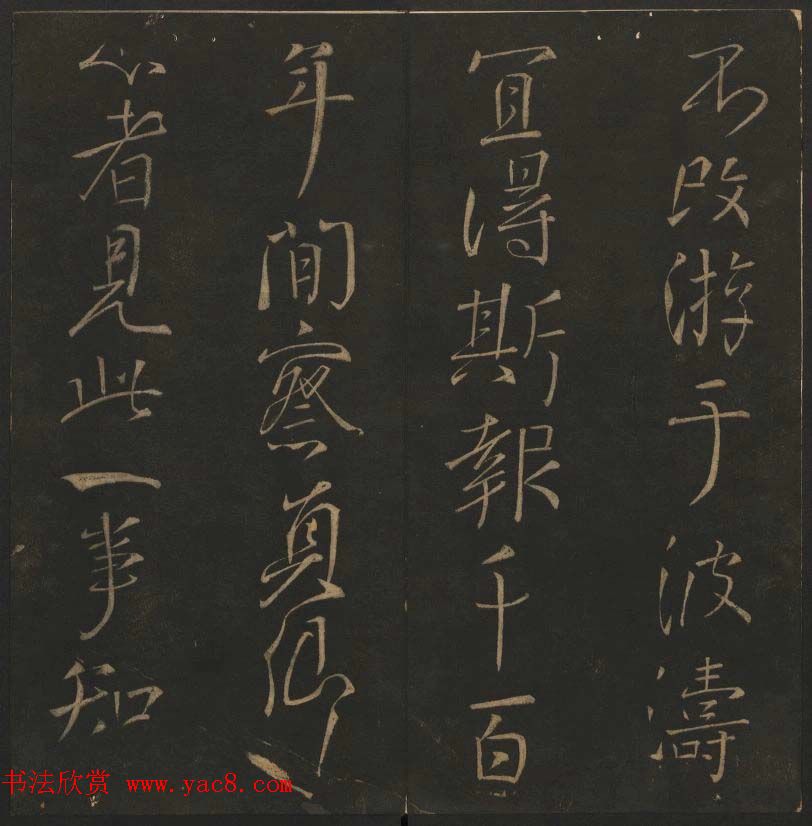 不改游于波濤
宜得斯報千百
年間察真卿
心者見此一事知
书法欣赏 www.yac8.com